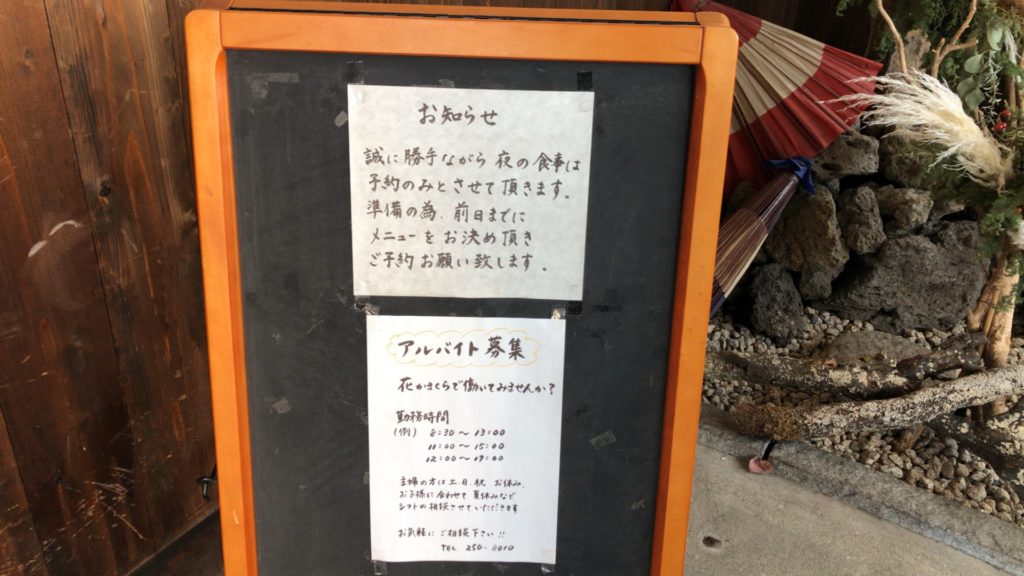 お知らせ
誠に勝手ながら 夜の食事は
予約のみとさせて頂きます。
準備の為、前日までに
メニューをお決め頂き
ご予約お願い致します。
アルバイト募集
花かまくらで働いてみませんか?
勤務時間
(例) 8:30〜13:00
11:00〜15:00
12:00〜19:00
主婦の方は土、日、祝 お休み、
お子様に合わせて 夏休みなど
シフトの相談させていただきます
お気軽に ご相談下さい!!
TEL 250-8010